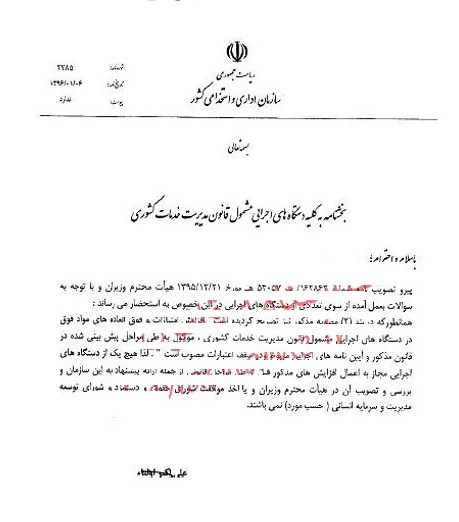 ریاست جمهوری
سازمان اداری و استخدامی کشور
شماره: ۲۲۸۵
تاریخ: ۱۳۹۶/۰۱/۰۶
پیوست: ندارد
بسمه تعالی
بخشنامه به کلیه دستگاه های اجرایی مشمول قانون مدیریت خدمات کشوری
با سلام و احترام؛
پیرو تصویب شماره ۱۶۲۸۶۲/ت ۵۲۰۵۷ هـ مورخ ۱۳۹۵/۱۲/۲۱ هیأت محترم وزیران و با توجه به
سوالات بعمل آمده از سوی تعدادی از دستگاه های اجرایی در این خصوص به استحضار می رساند :
همانطورکه در بند (۲) مصوبه مذکور نیز تصریح گردیده است امتیازات و فوق العاده های مواد فوق
در دستگاه های اجرایی مشمول قانون مدیریت خدمات کشوری ، موکول به طی مراحل پیش بینی شده در
قانون مذکور و آیین نامه های اجرایی مربوط و در سقف اعتبارات مصوب است " . لذا هیچ یک از دستگاه های
اجرایی مجاز به اعمال افزایش های مذکور از جمله ارائه پیشنهاد به این سازمان و
بررسی و تصویب آن در هیأت محترم وزیران و یا اخذ موافقت شورای حقوق و دستمزد و شورای توسعه
مدیریت و سرمایه انسانی ( حسب مورد) نمی باشند.